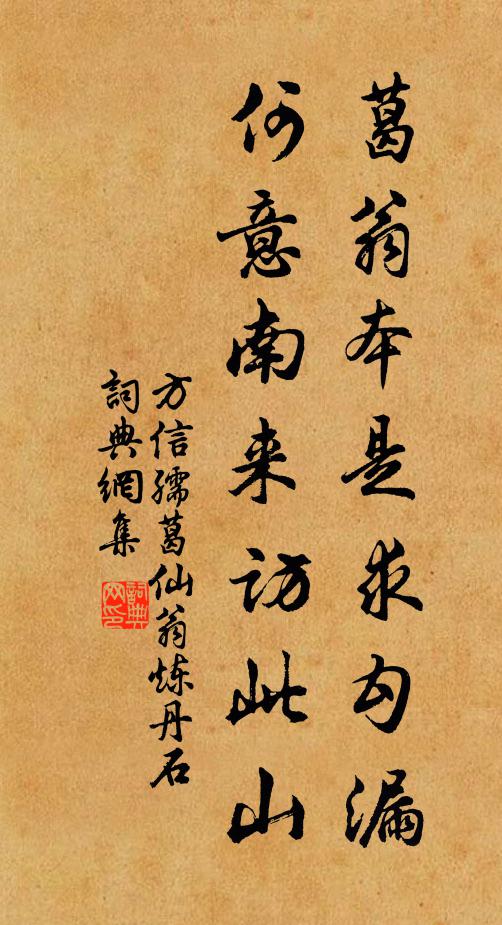 葛翁本是求勾漏
何意南来访此山
方信孺葛仙翁炼丹石
詞典網集
詞典网印